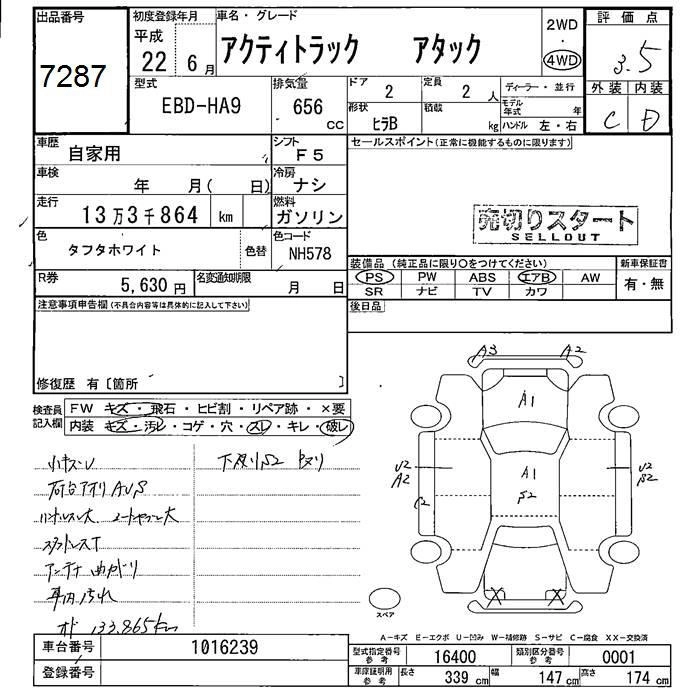 出品番号
7287
初度登録年月
平成
22 6月
車名・グレード
アクティトラック アタック
2WD
・
4WD
評価点
3.5
外装 内装
C D
型式
EBD-HA9
排気量
656 cc
ドア
2
定員
2 人
形状
ヒラB
積載
kg
ディーラー・並行
モデル年式 年
ハンドル 左・右
車歴
自家用
シフト
F5
車検
年 月( 日)
冷房
ナシ
走行
13万3千864 km
燃料
ガソリン
色
タフタホワイト
色替
色コード
NH578
R券
5,630円
名変通知期限
月 日
セールスポイント(正常に機能するものに限ります)
売切りスタート
SELLOUT
装備品(純正品に限り○をつけてください)
PS PW ABS エアB AW
SR ナビ TV カワ
新車保証書
有・無
後日品
注意事項申告欄(不具合内容等は具体的に記入して下さい)
修復歴 有〔箇所 〕
検査員記入欄
FW キズ・飛石・ヒビ割・リペア跡・×要
内装 キズ・汚レ・コゲ・穴・スレ・キレ・破レ
小キズU
下廻りS2
荷台アオリAUS
スタッドレスT
アンテナ曲がり
車内汚れ
133,865km
A3 A2
A1
U2
A2
A1
S2
U2
S2
C2
X X
スペア
A-キズ E-エクボ U-凹み W-補修跡 S-サビ C-腐食 XX-交換済
車台番号
1016239
登録番号
型式指定番号 参考
16400
類別区分番号 参考
0001
車庫証明用 参考
長さ 339 cm 幅 147 cm 高さ 174 cm